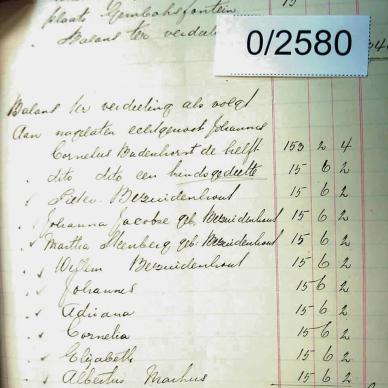 plaats Gembokfontein 15
Balans ter verdeeling 34
0/2580
Balans ter verdeeling als volgt
Aan nagelaten echtgenoot Johannes
Cornelius Badenhorst de helft 153 2 4
dito dito een kindsgedeelte 15 6 2
Pieter Bezuidenhout 15 6 2
Johanna Jacoba geb. Bezuidenhout 15 6 2
Martha Steenberg geb. Bezuidenhout 15 6 2
Willem Bezuidenhout 15 6 2
Johannes 15 6 2
Adriana 15 6 2
Cornelia 15 6 2
Elizabeth 15 6 2
Albertus 15 6 2